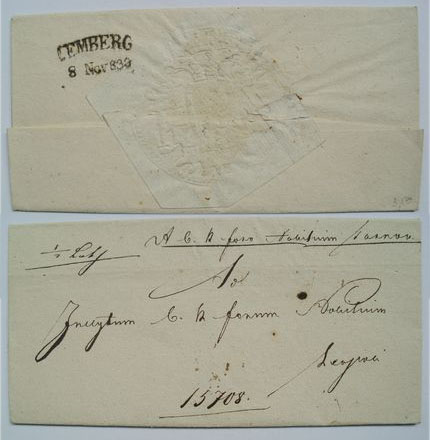 LEMBERG
8 Nov 839
1/2 Loth
A C. R. foro Nobilium Tarnov.
Ad
Inclytum C. R. forum Nobilium
Leopoli
15708.